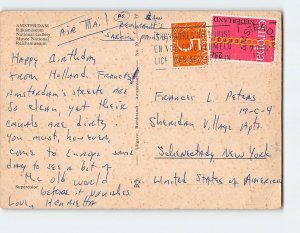 AMSTERDAM
Rijksmuseum
National Gallery
Musée National
Reichsmuseum
AIR MAIL
Rembrandt's
Happy Birthday
from Holland, Frances.
Amsterdam's streets are
so clean yet their
canals are dirty.
You must, however,
come to Europe some
day to see a bit of
the old world
before it vanishes
Love, Henrietta
Supercolor
5
NEDERLAND
europa
Frances L. Peters
17-C-4
Sheridan Village Apts.
Schenectady, New York
United States of America